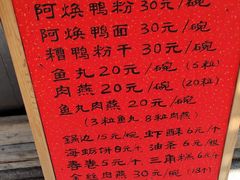 阿焕鸭粉 30元/碗
阿焕鸭面 30元/碗
糟鸭粉干 30元/碗
鱼丸 20元/碗 (5粒)
肉燕 20元/碗 (20粒)
鱼丸肉燕 20元/碗
(3粒鱼丸 8粒肉燕)
锅边 15元/碗 虾酥 6元/个
海蛎饼 8元/个 油条 6元/根
春卷 5元/个 三角糕 6元/个
金丝肉燕 30元/碗